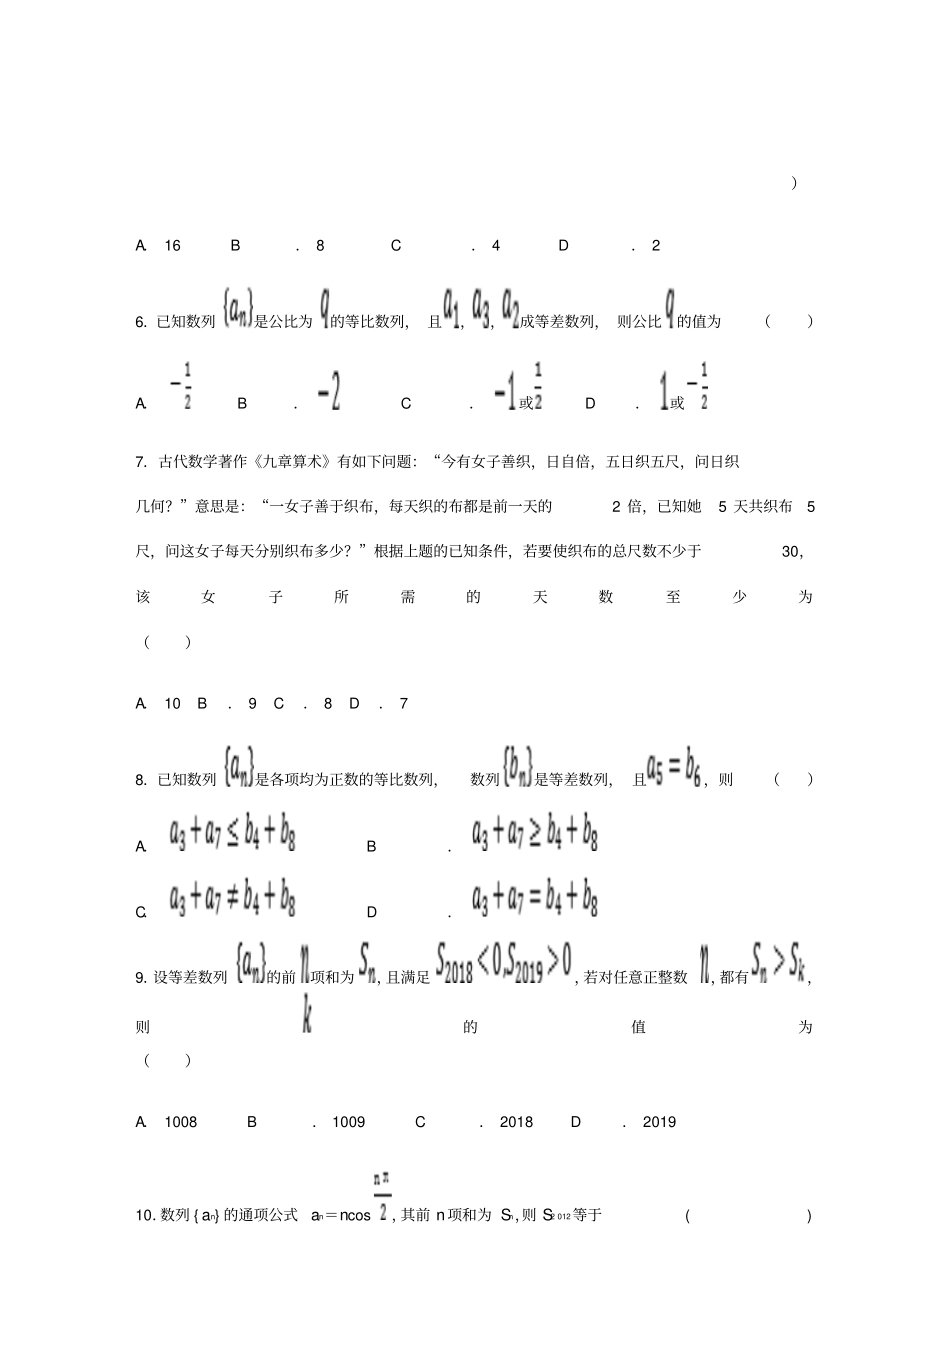 ）
A. 16 B . 8 C . 4 D . 2
6. 已知数列 {aₙ}是公比为 q的等比数列， 且a₁, a₃, a₂成等差数列， 则公比q的值为 （ ）
A. -1/2 B . -2 C . -1或1/2 D . 1或-1/2
7. 古代数学著作《九章算术》有如下问题：“今有女子善织，日自倍，五日织五尺，问日织
几何？”意思是：“一女子善于织布，每天织的布都是前一天的 2 倍，已知她 5 天共织布 5
尺，问这女子每天分别织布多少？”根据上题的已知条件，若要使织布的总尺数不少于 30，
该 女 子 所 需 的 天 数 至 少 为
（ ）
A. 10 B . 9 C . 8 D . 7
8. 已知数列 {aₙ}是各项均为正数的等比数列， 数列{bₙ}是等差数列， 且a₅=b₆，则 （ ）
A. a₃+a₇≤b₄+b₈ B . a₃+a₇≥b₄+b₈
C. a₃+a₇≠b₄+b₈ D . a₃+a₇=b₄+b₈
9. 设等差数列 {aₙ}的前n项和为Sₙ, 且满足 S₂₀₁₈<0,S₂₀₁₉>0, 若对任意正整数 n, 都有Sₙ>Sₖ,
则 k 的 值 为
（ ）
A. 1008 B . 1009 C . 2018 D . 2019
10. 数列 { aₙ} 的通项公式 aₙ＝ncos nπ/2, 其前 n 项和为 Sₙ, 则 S₂ ₀₁₂ 等于 ( )